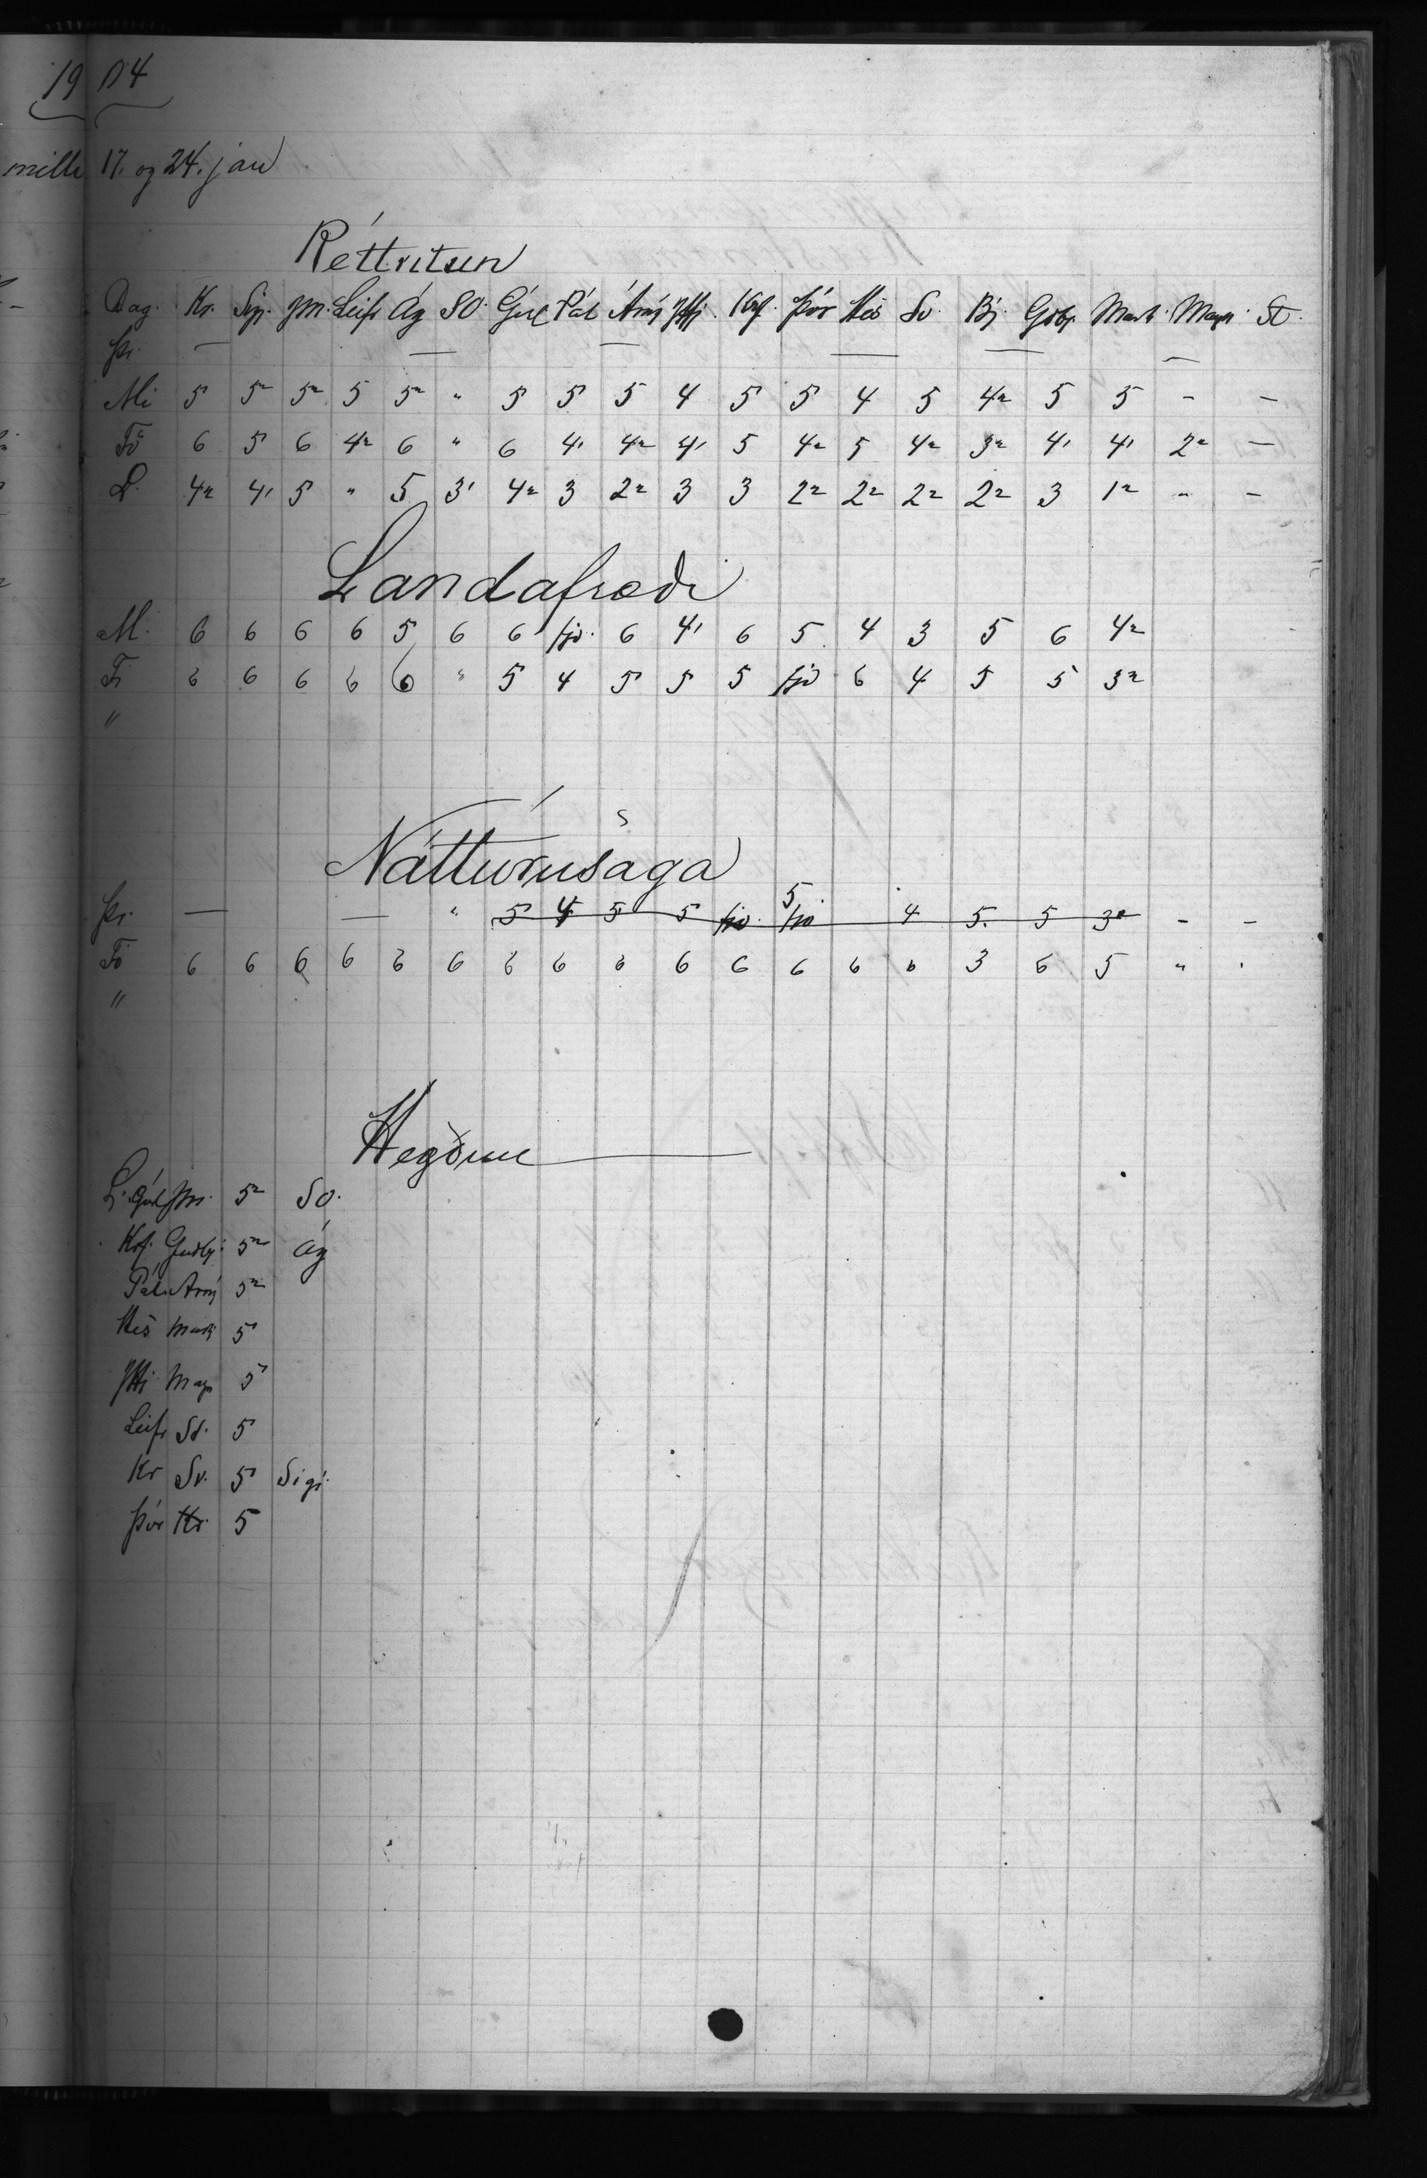 1904
milli 17. og 24. jan
Réttritun
Dag. Kr. Sig. JM. Leifr Ág SO. Guð Pál Árni JHj. Krf. Þór Hes Sv. Bj. Gubj. Mark. Magn. St.
Þr. — — — — — —
Mi 5 5" 5" 5 5" " 5 5 5 4 5 5 4 5 4" 5 5 - -
Fö 6 5 6 4" 6 " 6 4' 4" 4' 5 4" 5 4" 3" 4' 4' 2" -
L. 4" 4' 5 " 5 3' 4" 3 2" 3 3 2" 2" 2" 2" 3 1" " -
Landafræði
M. 6 6 6 6 5 6 6 fjv. 6 4' 6 5 4 3 5 6 4"
Fi 6 6 6 6 6 " 5 4 5 5 5 fjv 6 4 5 5 3"
"
s
Náttúrusaga
5
Þr. — — " 5 4 5 5 fjv. fjv 4 5. 5 3" - -
Fö 6 6 6 6 6 6 6 6 6 6 6 6 6 6 3 6 5 " .
"
Hegðun
L. Guð JM. 5" SO.
Krf. Guðbj. 5" Ág
Pál. Árni 5"
Hes Mark 5
JHj Magn 5
Leifr St. 5
Kr Sv. 5 Sigr.
Þór Kr. 5